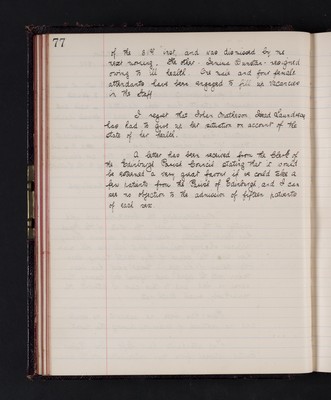 77
of the 31st inst. and was dismissed by me
next morning. The other - Denham - resigned
owing to ill health. One male and four female
attendants have been engaged to fill up vacancies
in the staff.
I regret that Helen Mathieson, Head Laundress
has had to give up her situation on account of the
state of her health.
A letter has been received from the Clerk of
the Edinburgh Parish Council stating that it would
be esteemed a very great favour if we could take a
few patients from the Parish of Edinburgh and I can
see no objection to the admission of fifteen patients
of each sex.